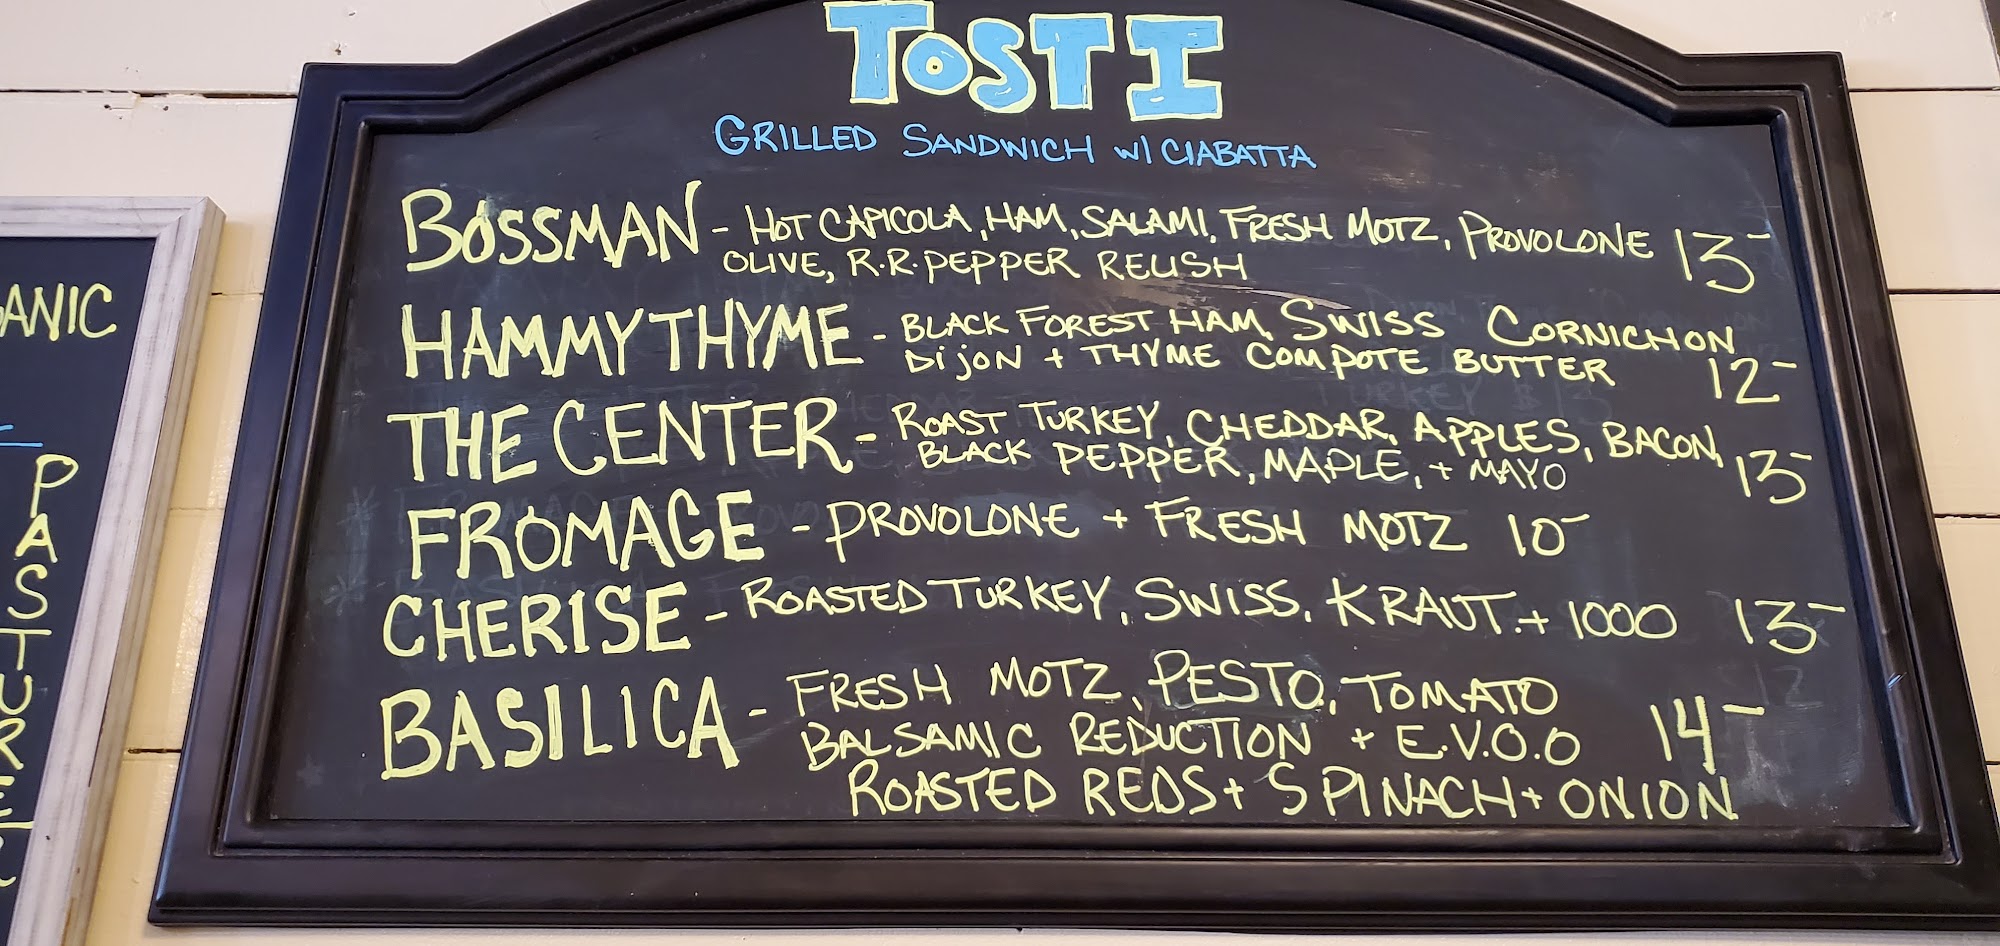 TOSTI
GRILLED SANDWICH W/ CIABATTA
BOSSMAN - HOT CAPICOLA, HAM, SALAMI, FRESH MOTZ, PROVOLONE 13-
OLIVE, R.R. PEPPER RELISH
HAMMY THYME - BLACK FOREST HAM, SWISS CORNICHON
DIJON + THYME COMPOTE BUTTER 12-
THE CENTER - ROAST TURKEY, CHEDDAR, APPLES, BACON,
BLACK PEPPER, MAPLE, + MAYO 13-
FROMAGE - PROVOLONE + FRESH MOTZ 10-
CHERISE - ROASTED TURKEY, SWISS, KRAUT. + 1000 13-
BASILICA - FRESH MOTZ, PESTO, TOMATO
BALSAMIC REDUCTION + E.V.O.O 14-
ROASTED REDS + SPINACH + ONION
ANIC
PASTURE